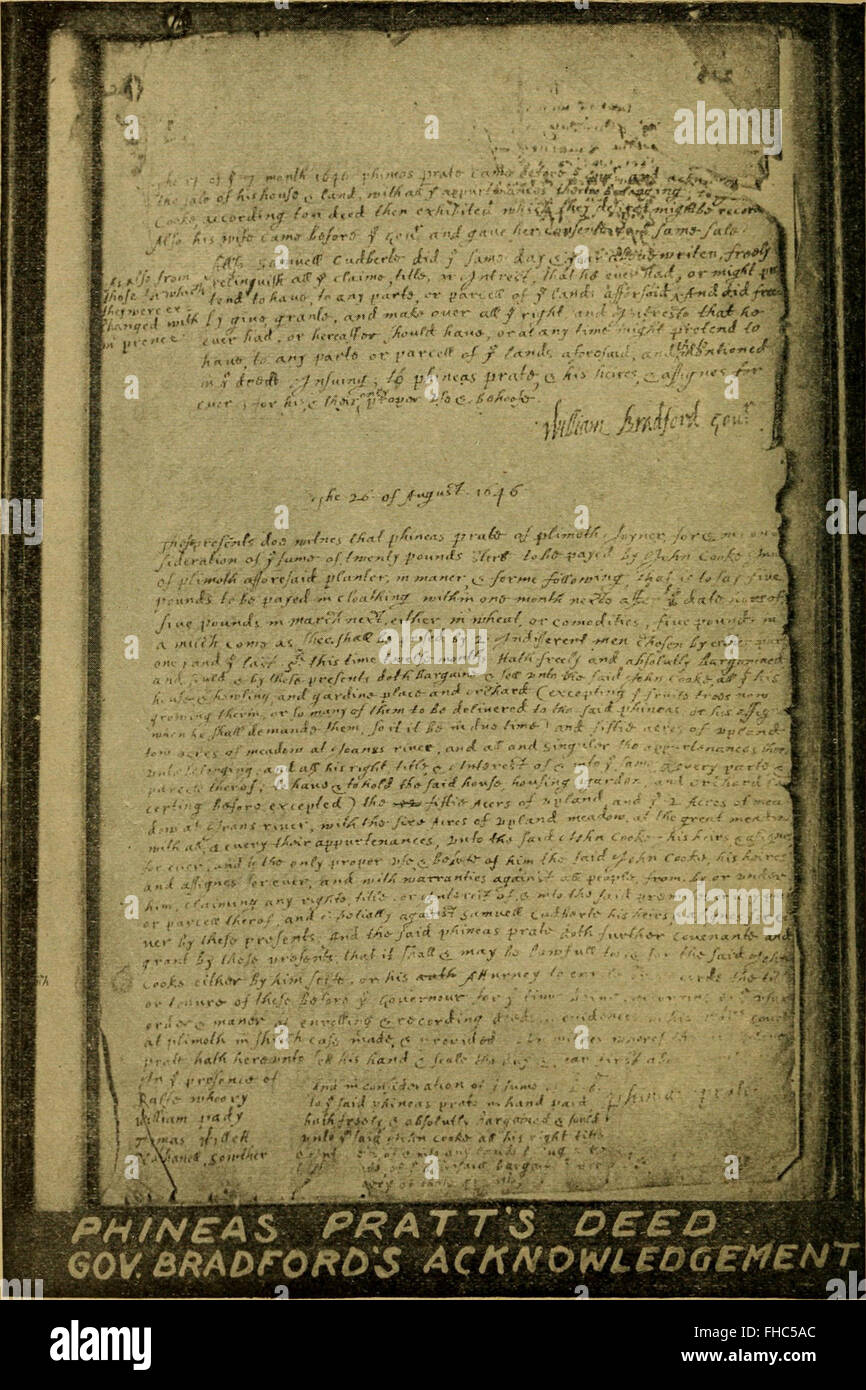 of yᵉ 7 month 1646 phineas prate came before yᵉ Govʳ and
the sale of his house & land, with all yᵉ appurtenances therto belonging
Cooke according to a deed then exhibited which they desired might be recor
Also his wife came before yᵉ Govʳ and gave her consente to yᵉ same sale.
Samuell Cudberte did yᵉ same day & year above writen, freely
relinquish all yᵉ claime, title, or Intrest, that he ever had, or might pre
tend to have, to any parte, or parcell of yᵉ lands afforsaid & And did free
ly give grante, and make over all yᵉ right and Intreste that he
ever had, or hereafter should have, or at any time might pretend to
have, to any parte or parcell of yᵉ lands aforesaid, and mentioned
in yᵉ deede Insuing; to phineas prate, & his heires, & assignes for
ever; for his, & their proper use & behoofe.
As also from
those for which
they were ex
changed with
mʳ prence
William Bradford Govʳ
The 26 of August 1646
These presents doe witnes that phineas prate of plimoth Joyner, for & in con
sideration of yᵉ sume of twenty pounds sterl to be payed by John Cooke
of plimoth afforesaid planter, in maner & forme following, that is to say five
pounds to be payed in cloathing within one month next after yᵉ date
five pounds in march next, either in wheat, or comodities, five pounds in
a milch cowe as shee shall be by 2 Indifferent men chosen by
one; and yᵉ last this time twelfe month Hath freely and absolutly Bargained
and sould & by these presents doth bargaine & sell unto the said John Cooke all yᵉ his
house & howsing, and gardine place and orchard (excepting yᵉ fruite trees now
growing therin, or so many of them to be delivered to the said phineas or his assignes
when he shall demande them, so it be in due time) and fiftie acres of upland
tow acres of meadow at Joanes river, and all and singuler the appurtenances ther
unto belonging, and all his right, title, & Interest of & into yᵉ same & every parte &
parcell therof; To have & to hold the said house, housing gardon, and orchard (
cepting before excepted) the fiftie Acers of upland, and yᵉ 2 Acres of mea
dow at Joans river, with the five Acres of upland meadow, at the great meadow
with all & every their appurtenances, unto the said John Cooke his heirs, & assignes
for ever, and to the only proper use & behoofe of him the said John Cooke, his heires
and assignes for ever, and with warranties against all people, from, by or under
him, claiming any righte, title or Interest of, & into the said
or parcell therof, and espetially against Samuell Cudberte his heirs,
ver by these presents. And the said phineas prate doth further covenante and
grant by these presents, that it shall & may be lawfull to & for the said John
Cooke either by him selfe, or his Atturney to the
or tenure of these before yᵉ Governour for yᵉ time being
order & maner of enrolling & recording evidences
at plimoth in such case made & provided. In witnes wherof
prate hath hereunto set his hand & seale the day & year first
In yᵉ presence of
Ralfe wheory
William pady
Tomas Willet
Nathanell Sowther
And in consideration of yᵉ sume
to yᵉ said phineas prate in hand paid
hath freely & absolutly bargained & sould
unto yᵉ said John Cooke all his right title
Phineas prate
PHINEAS PRATT'S DEED
GOV. BRADFORD'S ACKNOWLEDGEMENT
alamy
alamy stock photo
FHC5AC
www.alamy.com